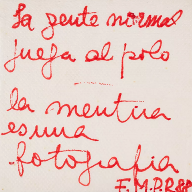 La gente normal
juega al polo
la mentira
es una
fotografia